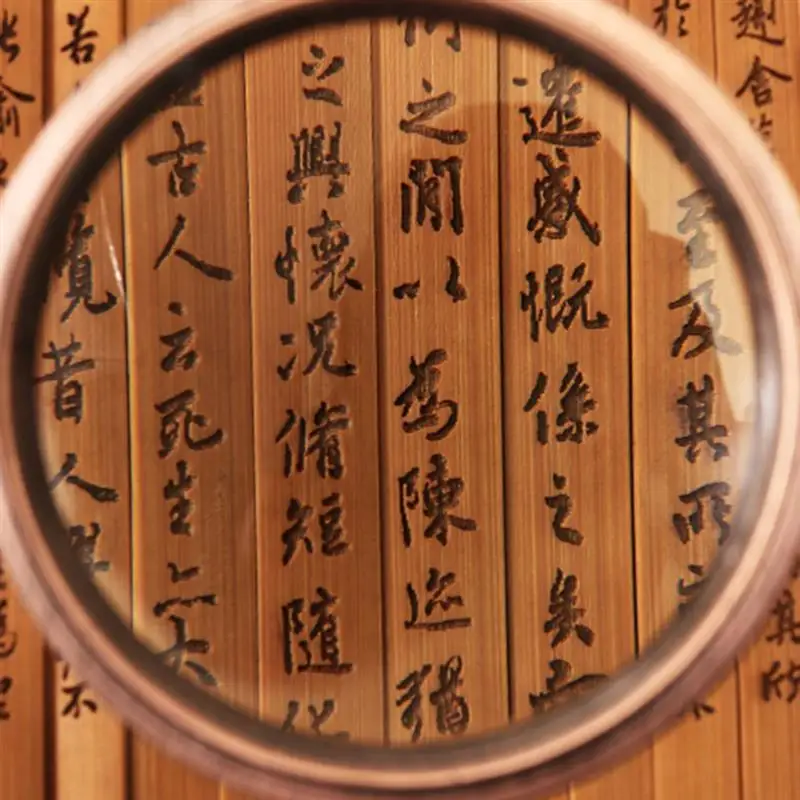 趣舍
其欣
於
至及其所
遷感慨係之矣向
仰之閒以為陳迹猶
之興懷況脩短隨化
古人云死生亦大
覽昔人興
若
不
喻